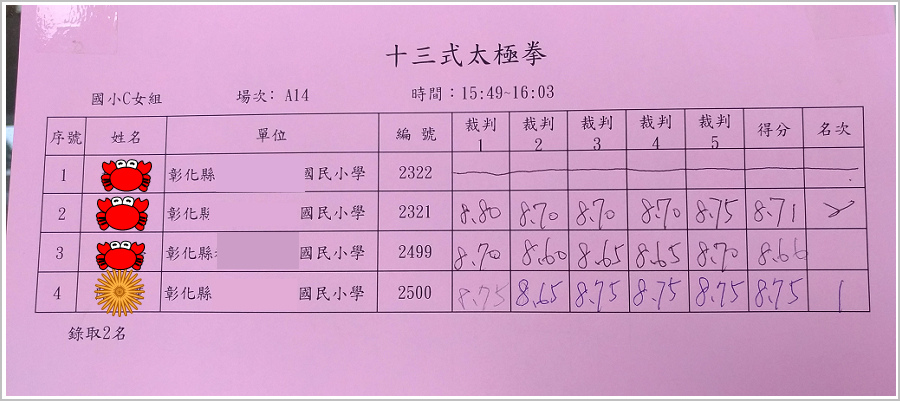 十三式太極拳
國小C女組 場次: A14 時間：15:49~16:03
序號 姓名 單位 編號 裁判1 裁判2 裁判3 裁判4 裁判5 得分 名次
1 彰化縣 國民小學 2322
2 彰化縣 國民小學 2321 8.80 8.70 8.70 8.70 8.75 8.71 2
3 彰化縣 國民小學 2499 8.70 8.60 8.65 8.65 8.70 8.66
4 彰化縣 國民小學 2500 8.75 8.65 8.75 8.75 8.75 8.75 1
錄取2名